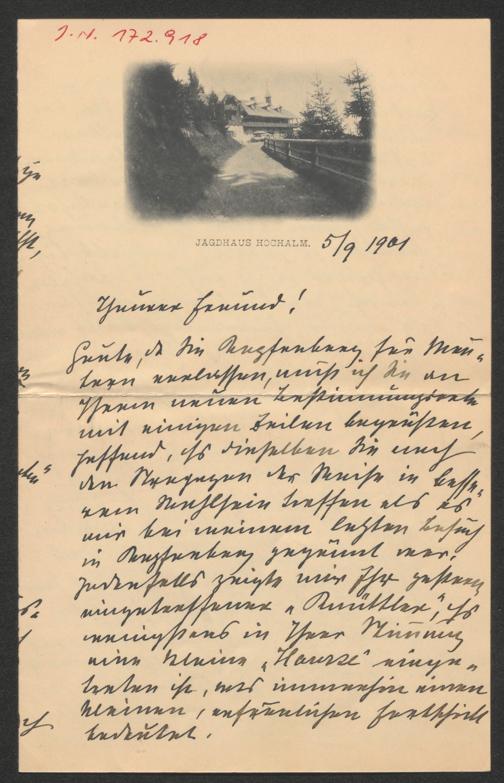 J.N. 172.918
JAGDHAUS HOCHALM. 5/9 1901
Theurer Freund!
Heute, da Sie Kapfenberg für Mau-
tern verlassen, muß ich Sie an
Ihrem neuen Bestimmungsorte
mit einigen Zeilen begrüßen,
hoffend, daß dieselben Sie nach
den Strapazen der Reise in besse-
rem Wohlsein treffen als es
mir bei meinem letzten Besuch
in Kapfenberg gegönnt war.
Jedenfalls zeigte mir Ihr gestern
eingetroffener „Knüttler", daß
wenigstens in Ihrer Stimmung
eine kleine „Hausse" einge-
treten ist, was immerhin einen
kleinen, erfreulichen Fortschritt
bedeutet.